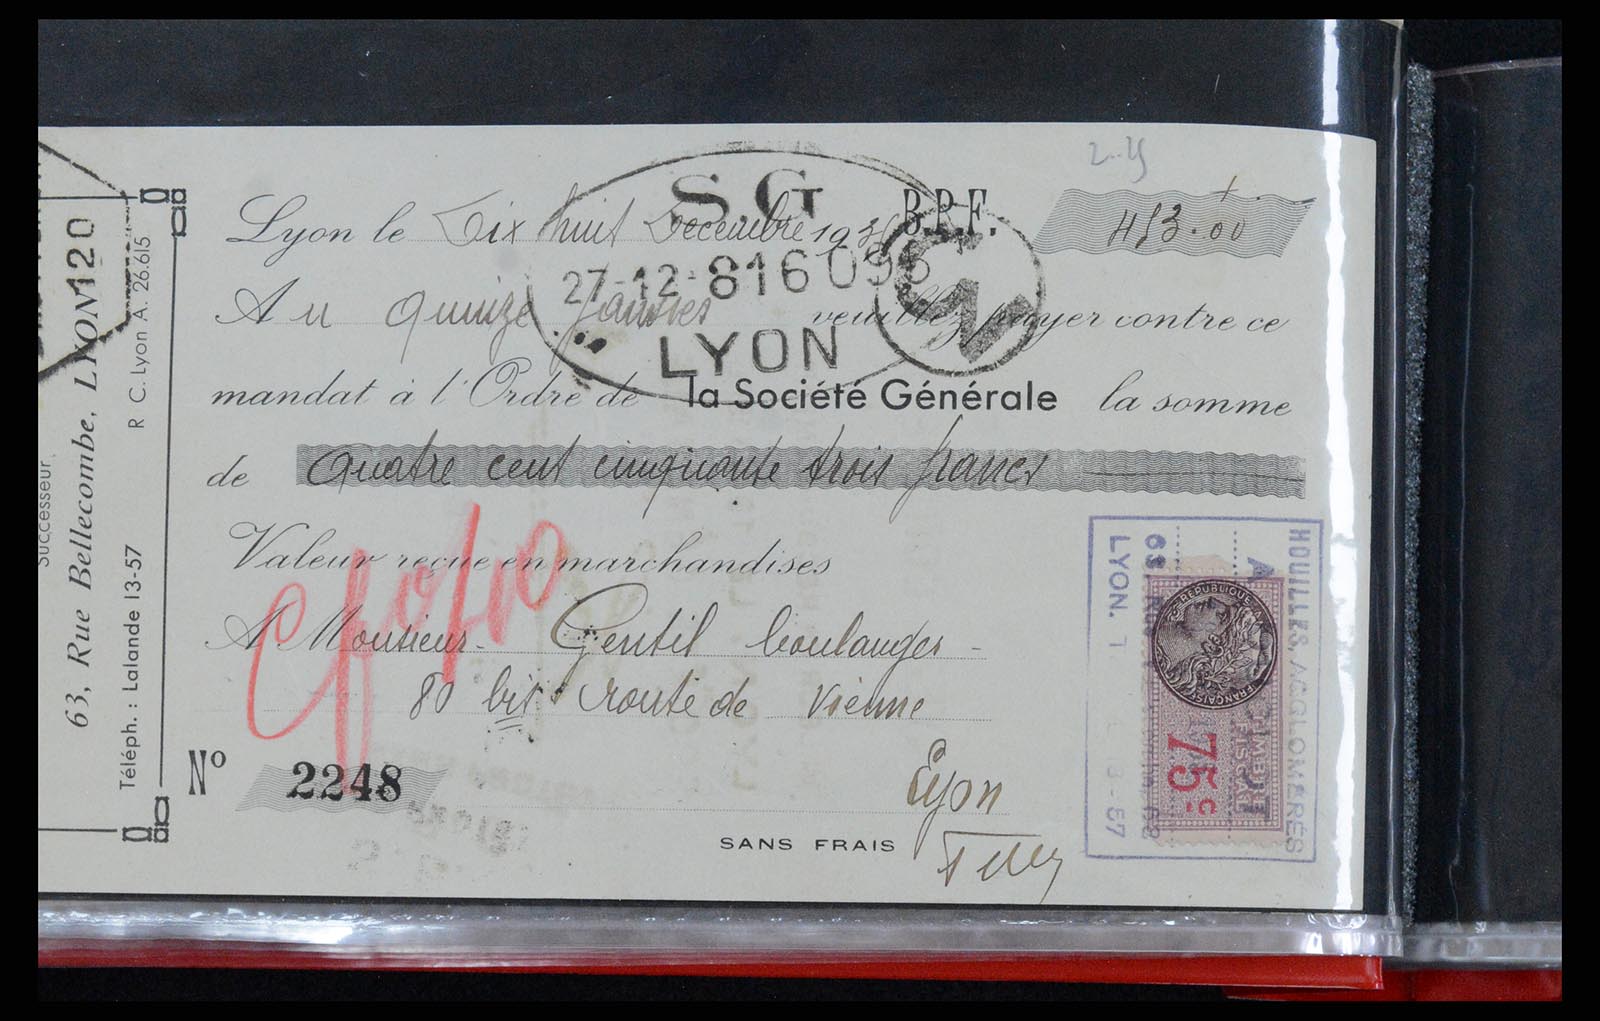 2-25
S.G
Lyon le Dix huit Decembre 193 B.P.F. 453.00
27-12-816 093
Au quinze Janvier veuillez payer contre ce
LYON
mandat à l'Ordre de la Société Générale la somme
de Quatre cent cinquante trois francs
Valeur reçue en marchandises
A Monsieur Gentil boulanger
80 bis route de Vienne
Lyon
Nº 2248
SANS FRAIS
Successeur
63, Rue Bellecombe, LYON
120
Téléph. : Lalande 13-57
R C. Lyon A. 26.615
HOUILLES, AGGLOMÉRÉS
A
63, RUE
LYON.
13-57
RÉPUBLIQUE
FRANÇAISE
TIMBRE
FISCAL
75c